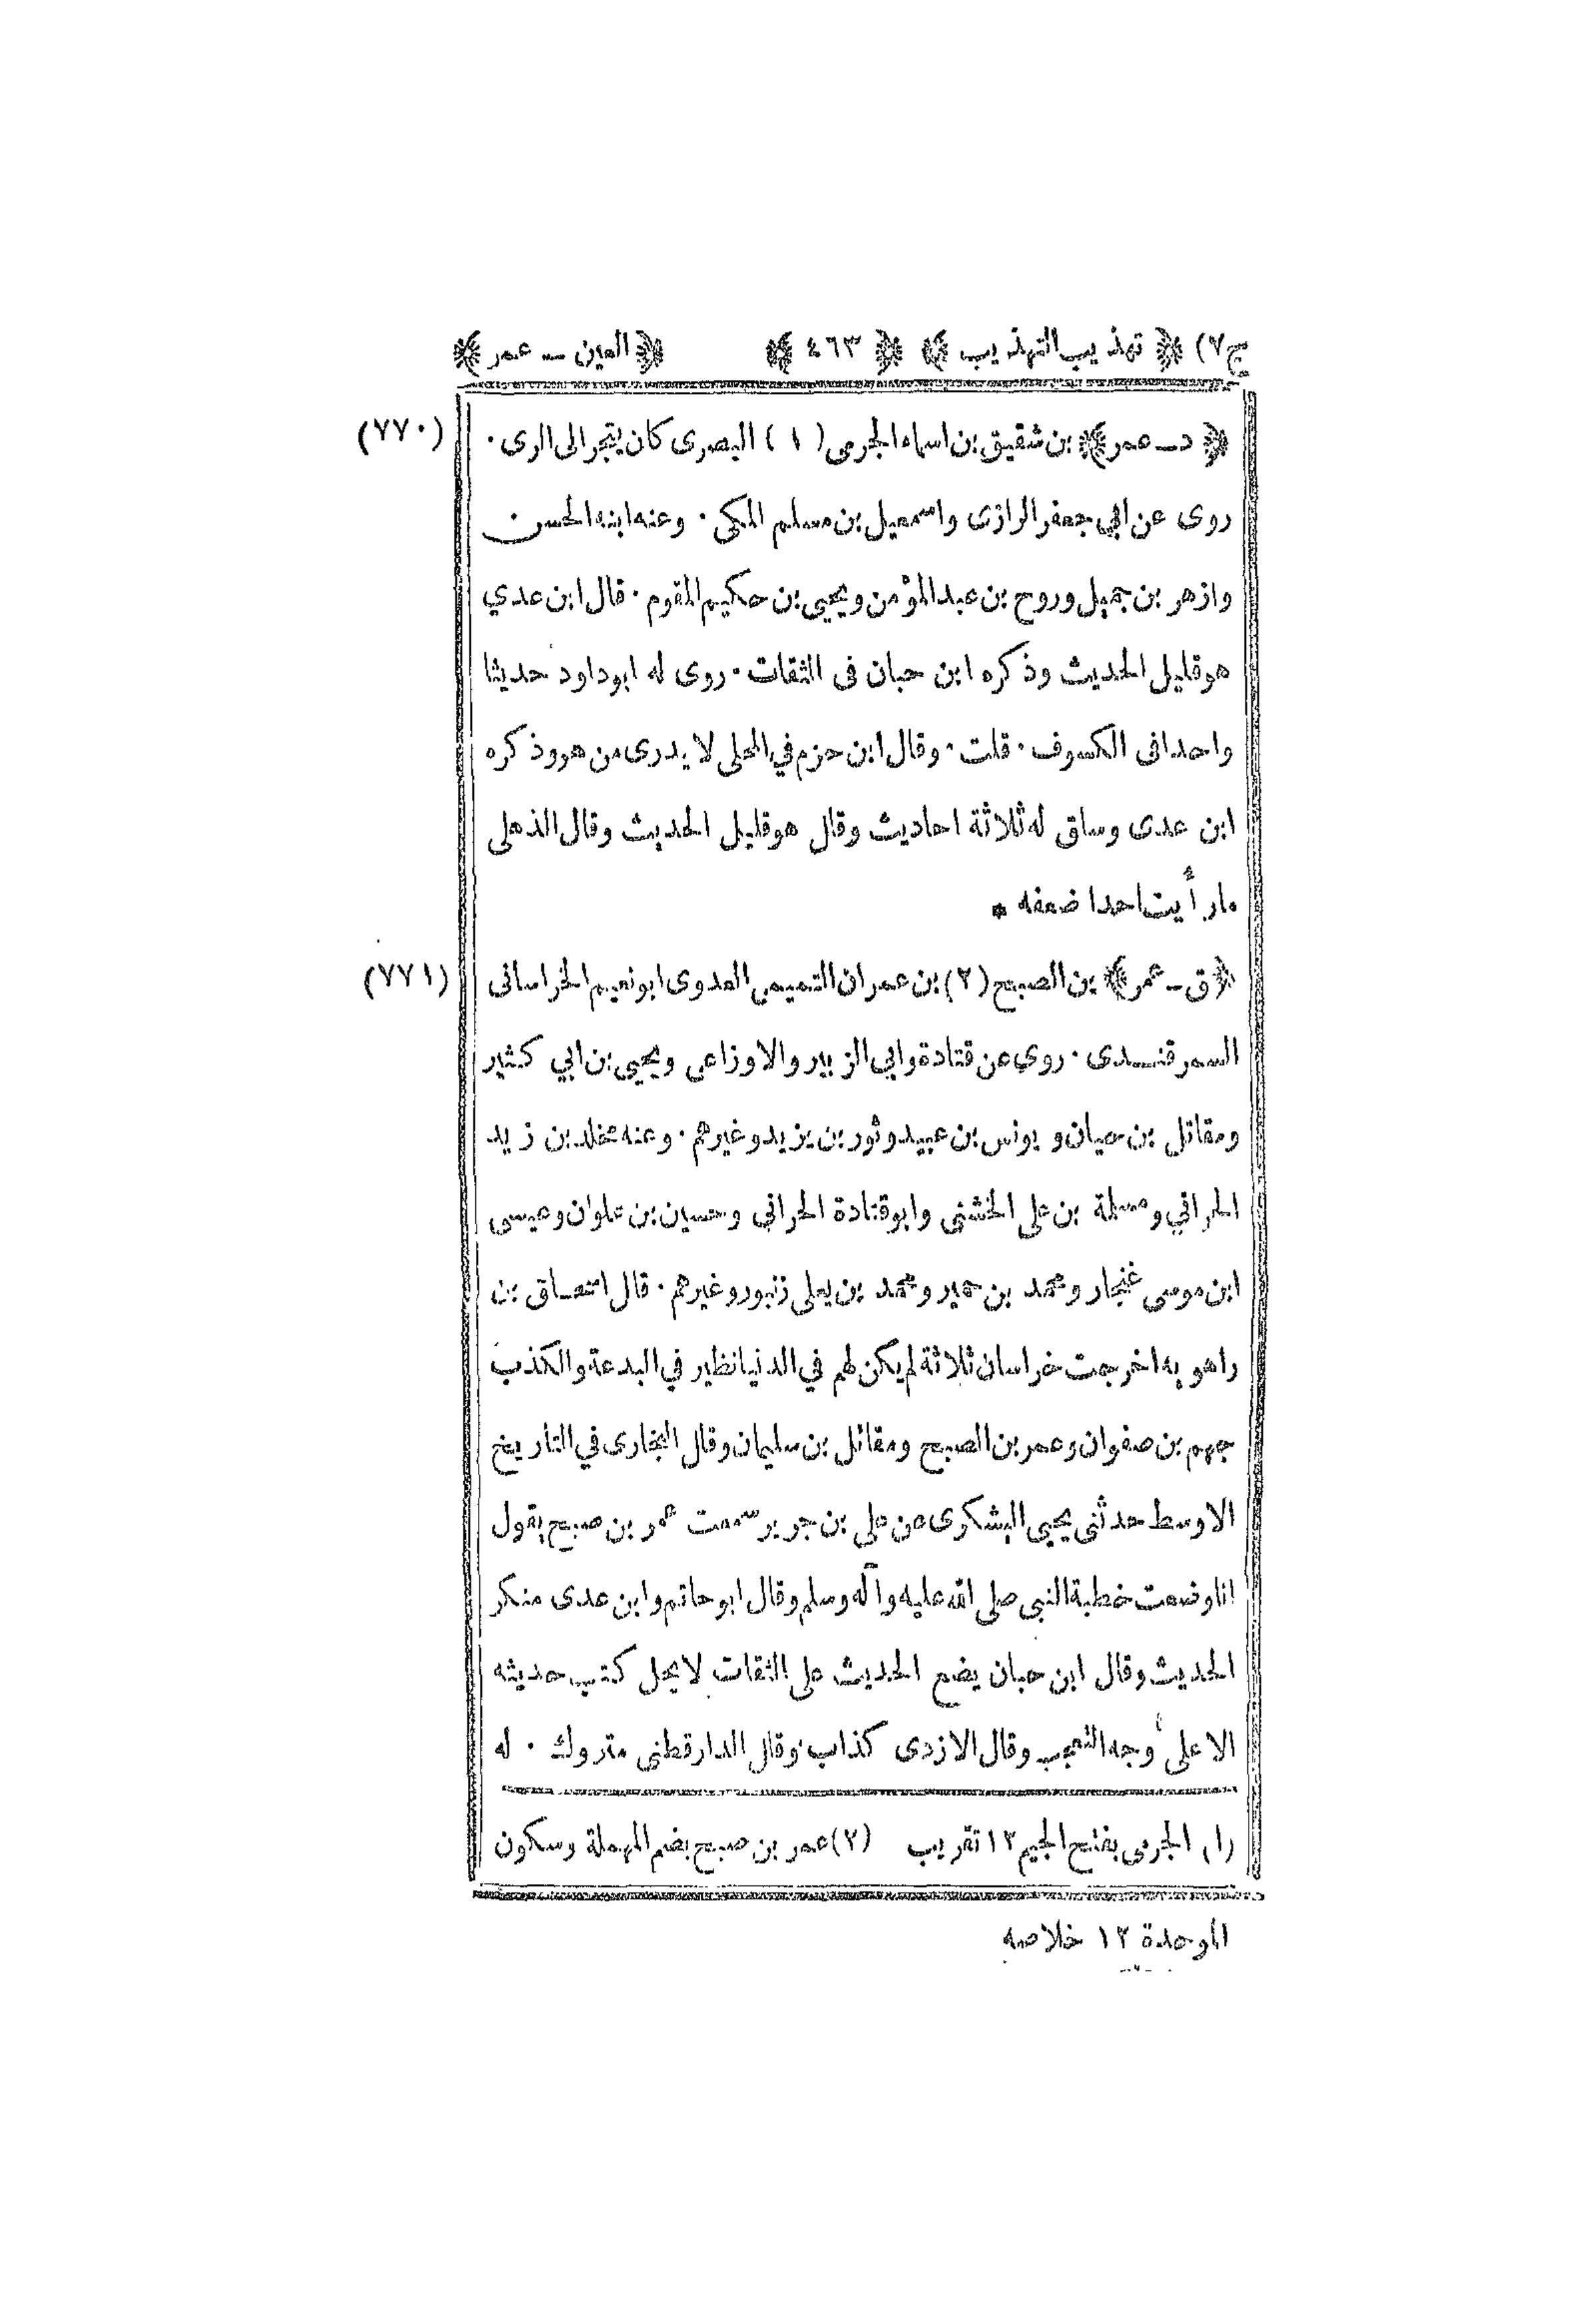 ج٧) ﴿ تهذيب التهذيب ﴾ ﴿ ٤٦٣ ﴾ ﴿ العين ــ عمر ﴾
(٧٧٠)
﴿ د ــ عمر ﴾ بن شقيق بن اسماء الجرمى (١) البصرى كان يتجر الى الرى ٠
روى عن ابي جعفر الرازى واسمعيل بن مسلم المكى ٠ وعنه ابنه الحسن
وازهر بن جميل وروح بن عبد المؤمن ويحيى بن حكيم المقوم ٠ قال ابن عدي
هو قليل الحديث وذكره ابن حبان فى الثقات ٠ روى له ابو داود حديثا
واحدا فى الكسوف ٠ قلت ٠ وقال ابن حزم في المحلى لا يدرى من هو وذكره
ابن عدى وساق له ثلاثة احاديث وقال هو قليل الحديث وقال الذهلى
ما رأيت احدا ضعفه *
(٧٧١)
﴿ ق ــ عمر ﴾ بن الصبح (٢) بن عمران التميمى العدوى ابو نعيم الخراسانى
السمرقنــدى ٠ روي عن قتادة وابي الزبير والاوزاعى ويحيى بن ابي كثير
ومقاتل بن حيان و يونس بن عبيد وثور بن يزيد وغيرهم ٠ وعنه مخلد بن زيد
الحرافي ومسلمة بن على الخشنى وابو قتادة الحرانى وحسين بن علوان وعيسى
ابن موسى غنجار ومحمد بن حمير ومحمد بن يعلى زنبور وغيرهم ٠ قال اسحــاق بن
راهويه اخرجت خراسان ثلاثة لم يكن لهم في الدنيا نظير في البدعة والكذب
جهم بن صفوان وعمر بن الصبح ومقاتل بن سليمان وقال البخارى في التاريخ
الاوسط حدثنى يحيى اليشكرى عن على بن جرير سمعت عمر بن صبح يقول
انا وضعت خطبة النبى صلى الله عليه وآله وسلم وقال ابو حاتم وابن عدى منكر
الحديث وقال ابن حبان يضع الحديث على الثقات لا يحل كتب حديثه
الا على وجه التعجب وقال الازدى كذاب وقال الدارقطنى متروك ٠ له
(١) الجرمى بفتح الجيم ١٢ تقريب (٢) عمر بن صبح بضم المهملة وسكون
الموحدة ١٢ خلاصه